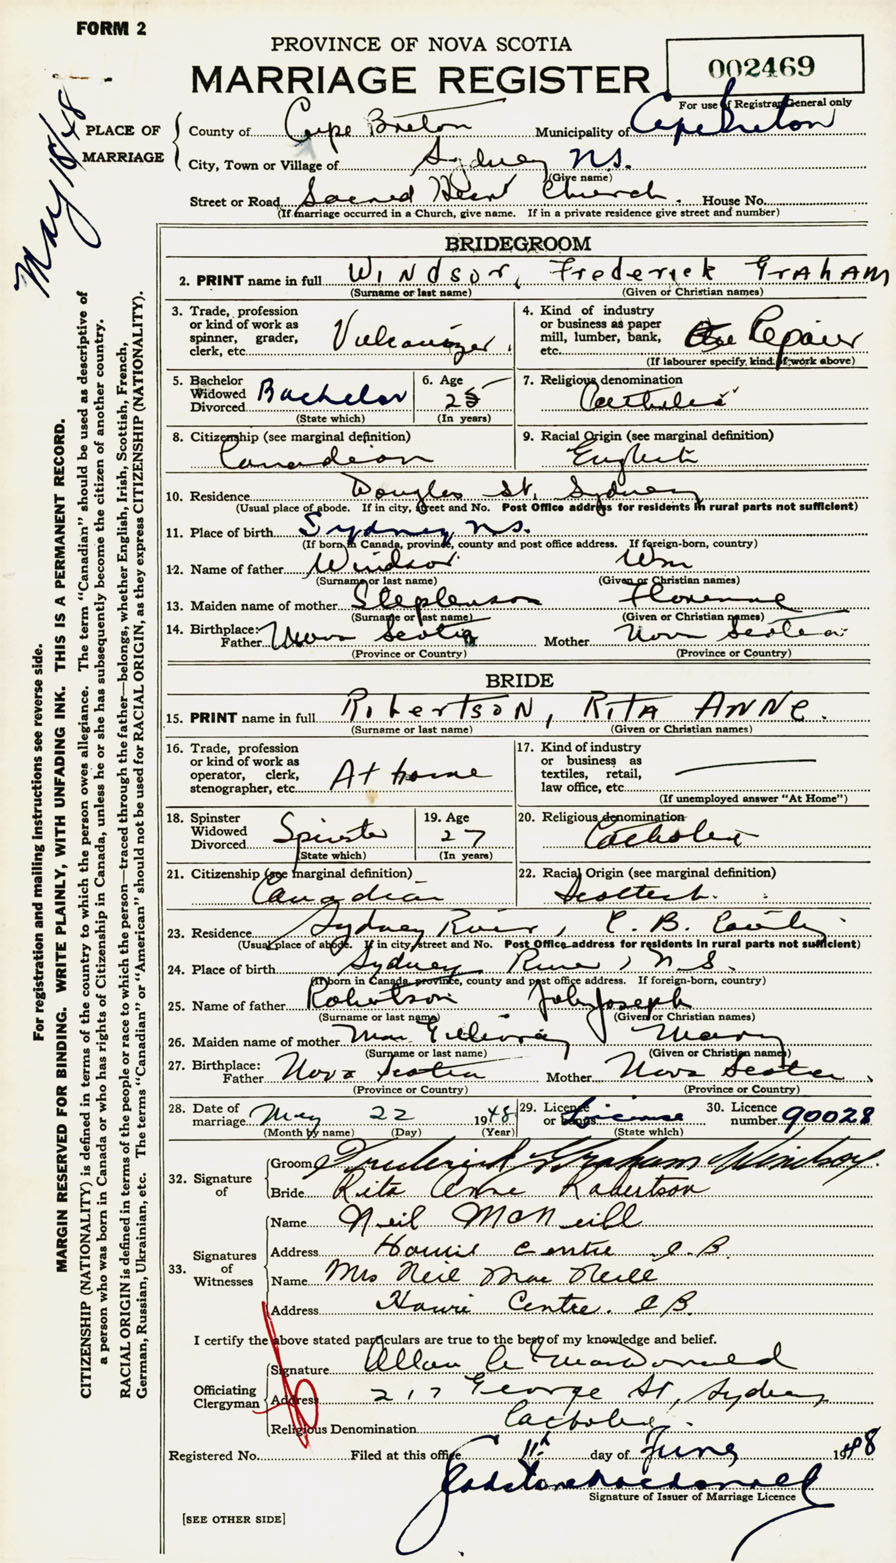 FORM 2
PROVINCE OF NOVA SCOTIA
MARRIAGE REGISTER
002469
For use of Registrar General only
May 18/48
PLACE OF MARRIAGE
County of Cape Breton Municipality of Cape Breton
City, Town or Village of Sydney N.S.
(Give name)
Street or Road Sacred Heart Church. House No.
(If marriage occurred in a Church, give name. If in a private residence give street and number)
BRIDEGROOM
2. PRINT name in full WINdsor, Frederick GrAHAM
(Surname or last name) (Given or Christian names)
3. Trade, profession or kind of work as spinner, grader, clerk, etc. Vulcanizer.
4. Kind of industry or business as paper mill, lumber, bank, etc. Repair
(If labourer specify kind of work above)
5. Bachelor Widowed Divorced Bachelor
(State which)
6. Age 25
(In years)
7. Religious denomination Catholic
8. Citizenship (see marginal definition) Canadian
9. Racial Origin (see marginal definition) English
10. Residence Douglas St. Sydney
(Usual place of abode. If in city, street and No. Post Office address for residents in rural parts not sufficient)
11. Place of birth Sydney N.S.
(If born in Canada, province, county and post office address. If foreign-born, country)
12. Name of father Windsor Wm
(Surname or last name) (Given or Christian names)
13. Maiden name of mother Stephenson Florence
(Surname or last name) (Given or Christian names)
14. Birthplace: Father Nova Scotia Mother Nova Scotia
(Province or Country) (Province or Country)
BRIDE
15. PRINT name in full RobertsoN, RITA ANNe.
(Surname or last name) (Given or Christian names)
16. Trade, profession or kind of work as operator, clerk, stenographer, etc. At home
17. Kind of industry or business as textiles, retail, law office, etc.
(If unemployed answer "At Home")
18. Spinster Widowed Divorced Spinster
(State which)
19. Age 27
(In years)
20. Religious denomination Catholic
21. Citizenship (see marginal definition) Canadian
22. Racial Origin (see marginal definition) Scottish.
23. Residence Sydney River, C. B. County
(Usual place of abode. If in city, street and No. Post Office address for residents in rural parts not sufficient)
24. Place of birth Sydney River, N.S.
(If born in Canada, province, county and post office address. If foreign-born, country)
25. Name of father Robertson John Joseph
(Surname or last name) (Given or Christian names)
26. Maiden name of mother Mac Gillivray Mary
(Surname or last name) (Given or Christian names)
27. Birthplace: Father Nova Scotia Mother Nova Scotia
(Province or Country) (Province or Country)
28. Date of marriage May 22 1948
(Month by name) (Day) (Year)
29. Licence or banns License
(State which)
30. Licence number 90028
32. Signature of
Groom Frederick Graham Windsor.
Bride Rita Anne Robertson
33. Signatures of Witnesses
Name Neil McNeill
Address Howie Centre C.B.
Name Mrs Neil Mac Neill
Address Howie Centre. C.B.
I certify the above stated particulars are true to the best of my knowledge and belief.
Officiating Clergyman
Signature Allan A MacDonald
Address 217 George St, Sydney
Religious Denomination Catholic.
Registered No. Filed at this office 11th day of June 1948
Signature of Issuer of Marriage Licence
[SEE OTHER SIDE]
For registration and mailing instructions see reverse side.
MARGIN RESERVED FOR BINDING. WRITE PLAINLY, WITH UNFADING INK. THIS IS A PERMANENT RECORD.
CITIZENSHIP (NATIONALITY) is defined in terms of the country to which the person owes allegiance. The term "Canadian" should be used as descriptive of
a person who was born in Canada or who has rights of Citizenship in Canada, unless he or she has subsequently become the citizen of another country.
RACIAL ORIGIN is defined in terms of the people or race to which the person—traced through the father—belongs, whether English, Irish, Scottish, French,
German, Russian, Ukrainian, etc. The terms "Canadian" or "American" should not be used for RACIAL ORIGIN, as they express CITIZENSHIP (NATIONALITY).